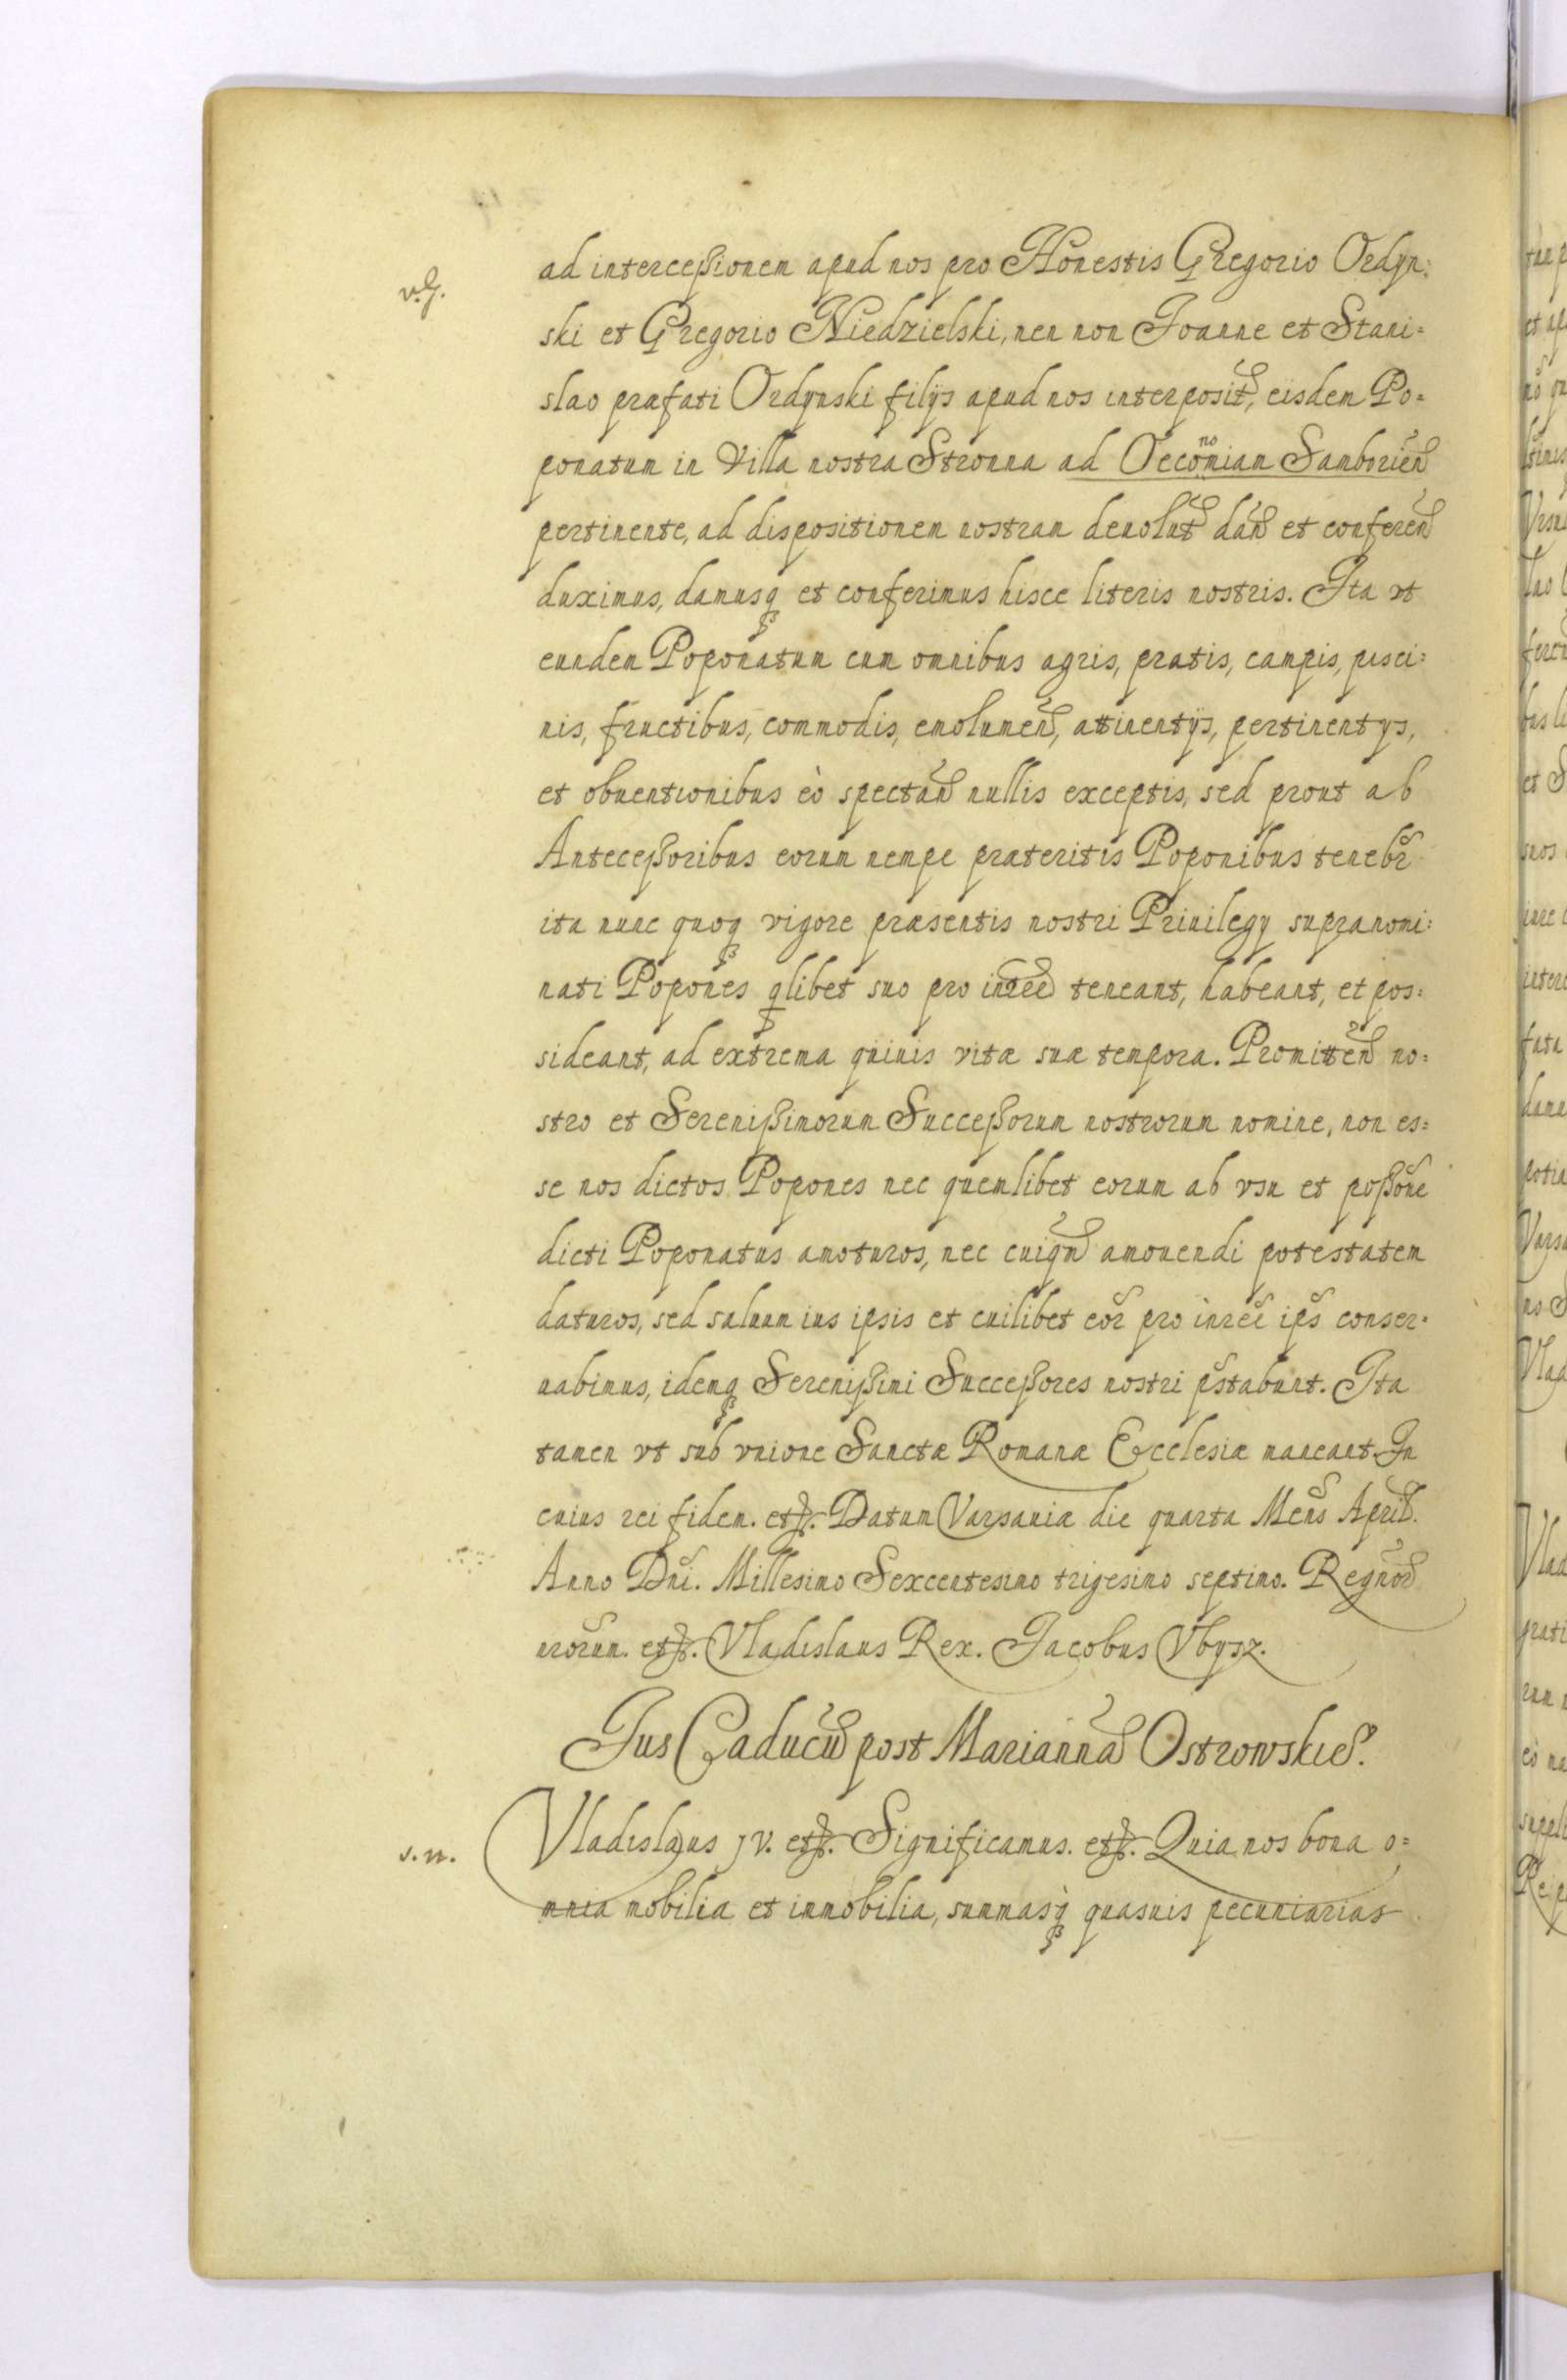 ad intercessionem apud nos pro Honestis Gregorio Ordyn:
v.g.
ski et Gregorio Niedzielski, nen non Joanne et Stani=
slao præfati Ordynski filijs apud nos interposit, eisdem Po=
ponatum in Villa nostra Stronna ad Oeconomiam Samborien
pertinente, ad dispositionem nostram deuolut dan et conferen
duximus, damusq et conferimus hisce literis nostris. Ita vt
eundem Poponatum cum omnibus agris, pratis, campis, pisci:
nis, fructibus, commodis, emolumen, attinentijs, pertinentys,
et obuentionibus eò spectan nullis exceptis, sed prout ab
Antecessoribus eorum nempe præteritis Poponibus tenebr
ita nunc quoq vigore præsentis nostri Priuilegy supranomi:
nati Popones qlibet suo pro interee teneant, habeant, et pos:
sideant, ad extrema quiuis vitæ suæ tempora. Promitten no:
stro et Serenissimorum Successorum nostrorum nomine, non es:
se nos dictos Popones nec quemlibet eorum ab vsu et possone
dicti Poponatus amoturos, nec cuiqu amouendi potestatem
daturos, sed saluum ius ipsis et cuilibet eor pro inree ips conser=
uabimus, idemq Serenissimi Successores nostri pstabunt. Ita
tamen vt sub vnione Sanctæ Romanæ Ecclesiæ maneant. In
cuius rei fidem. ett. Datum Varsauiæ die quarta Mens April.
Anno Dni. Millesimo Sexcentesimo trigesimo septimo. Regnor
nrorum. ett. Vladislaus Rex. Jacobus Vbysz.
Jus Caducu post Marianna Ostrowskie.
Vladislaus jv. ett. Significamus. ett. Quia nos bona o=
s.n.
mnia mobilia et immobilia, summasq quasuis pecuniarias